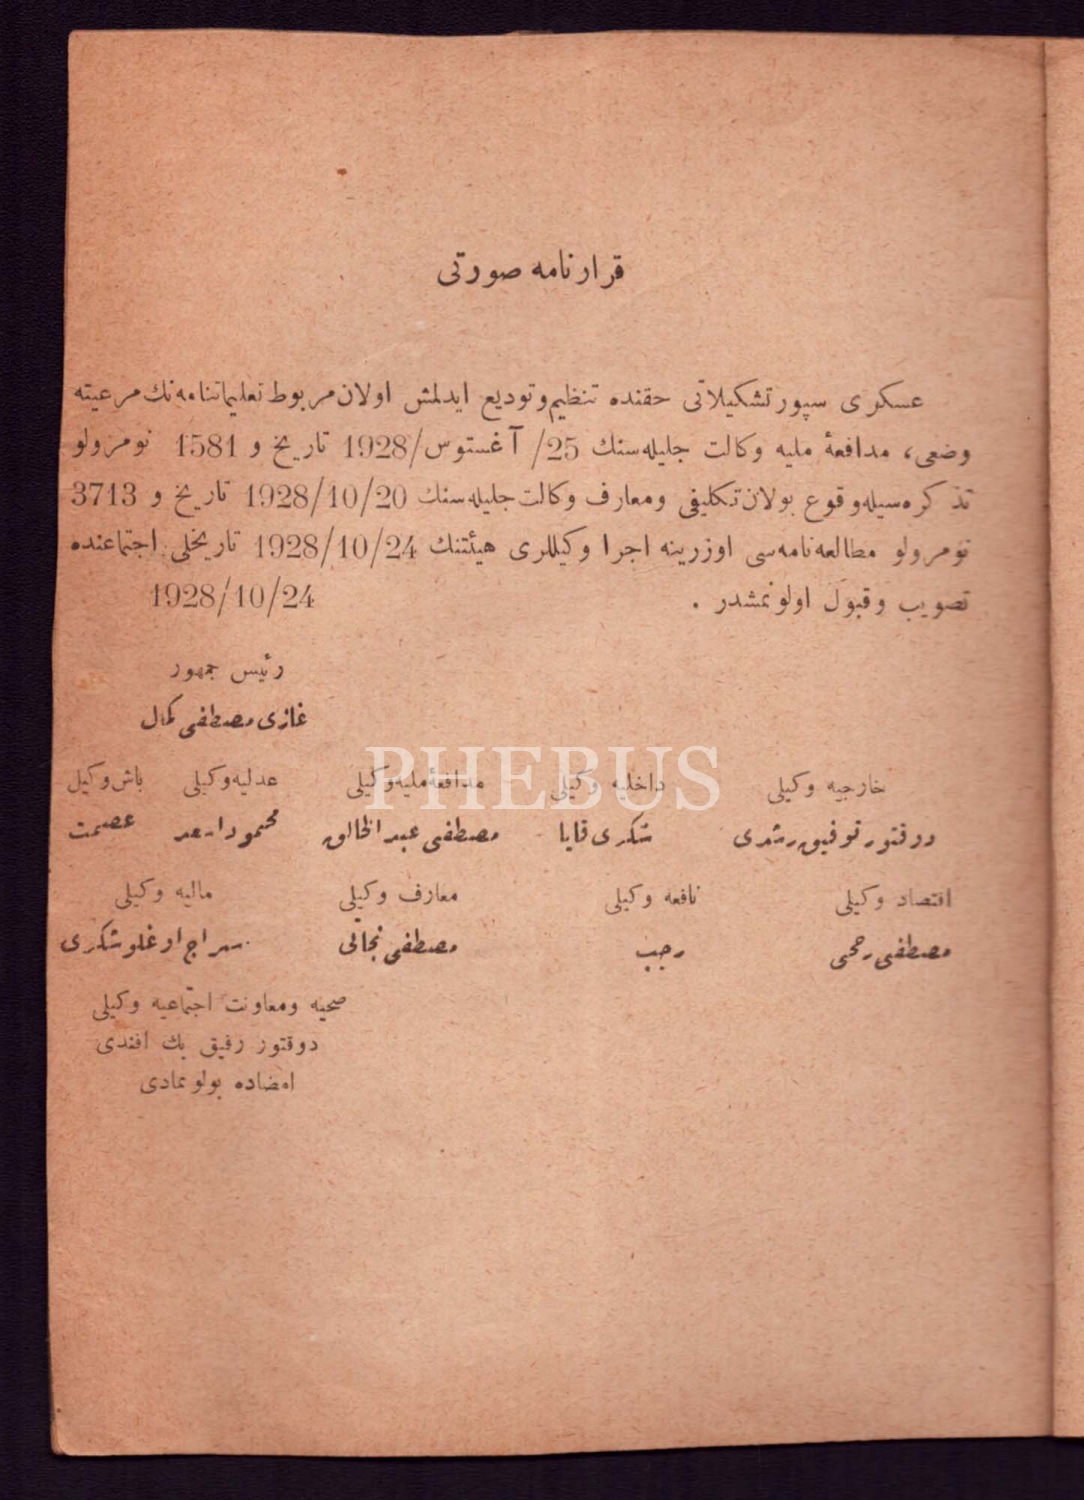 قرارنامه صورتی
عسكری سپور تشكیلاتی حقنده تنظیم و تودیع ایدلمش اولان مربوط تعلیماتنامه‌نك مرعیته
وضعی، مدافعهٔ ملیه وكالت جلیله‌سنك 25/ آغستوس/1928 تاریخ و 1581 نومرولو
تذكره‌سیله وقوع بولان تكلیفی ومعارف وكالت جلیله‌سنك 1928/10/20 تاریخ و 3713
نومرولو مطالعه‌نامه‌سی اوزرینه اجرا وكیللری هیئتنك 1928/10/24 تاریخلی اجتماعنده
تصویب وقبول اولونمشدر . 1928/10/24
رئیس جمهور
غازی مصطفی كمال
خارجیه وكیلی داخلیه وكیلی مدافعهٔ ملیه وكیلی عدلیه وكیلی باش وكیل
دوقتور توفیق رشدی شكری قایا مصطفی عبدالخالق محمود اسعد عصمت
اقتصاد وكیلی نافعه وكیلی معارف وكیلی مالیه وكیلی
مصطفی رحمی رجب مصطفی نجاتی سراج اوغلو شكری
صحیه ومعاونت اجتماعیه وكیلی
دوقتور رفیق بك افندی
امضاده بولونمادی
PHEBUS